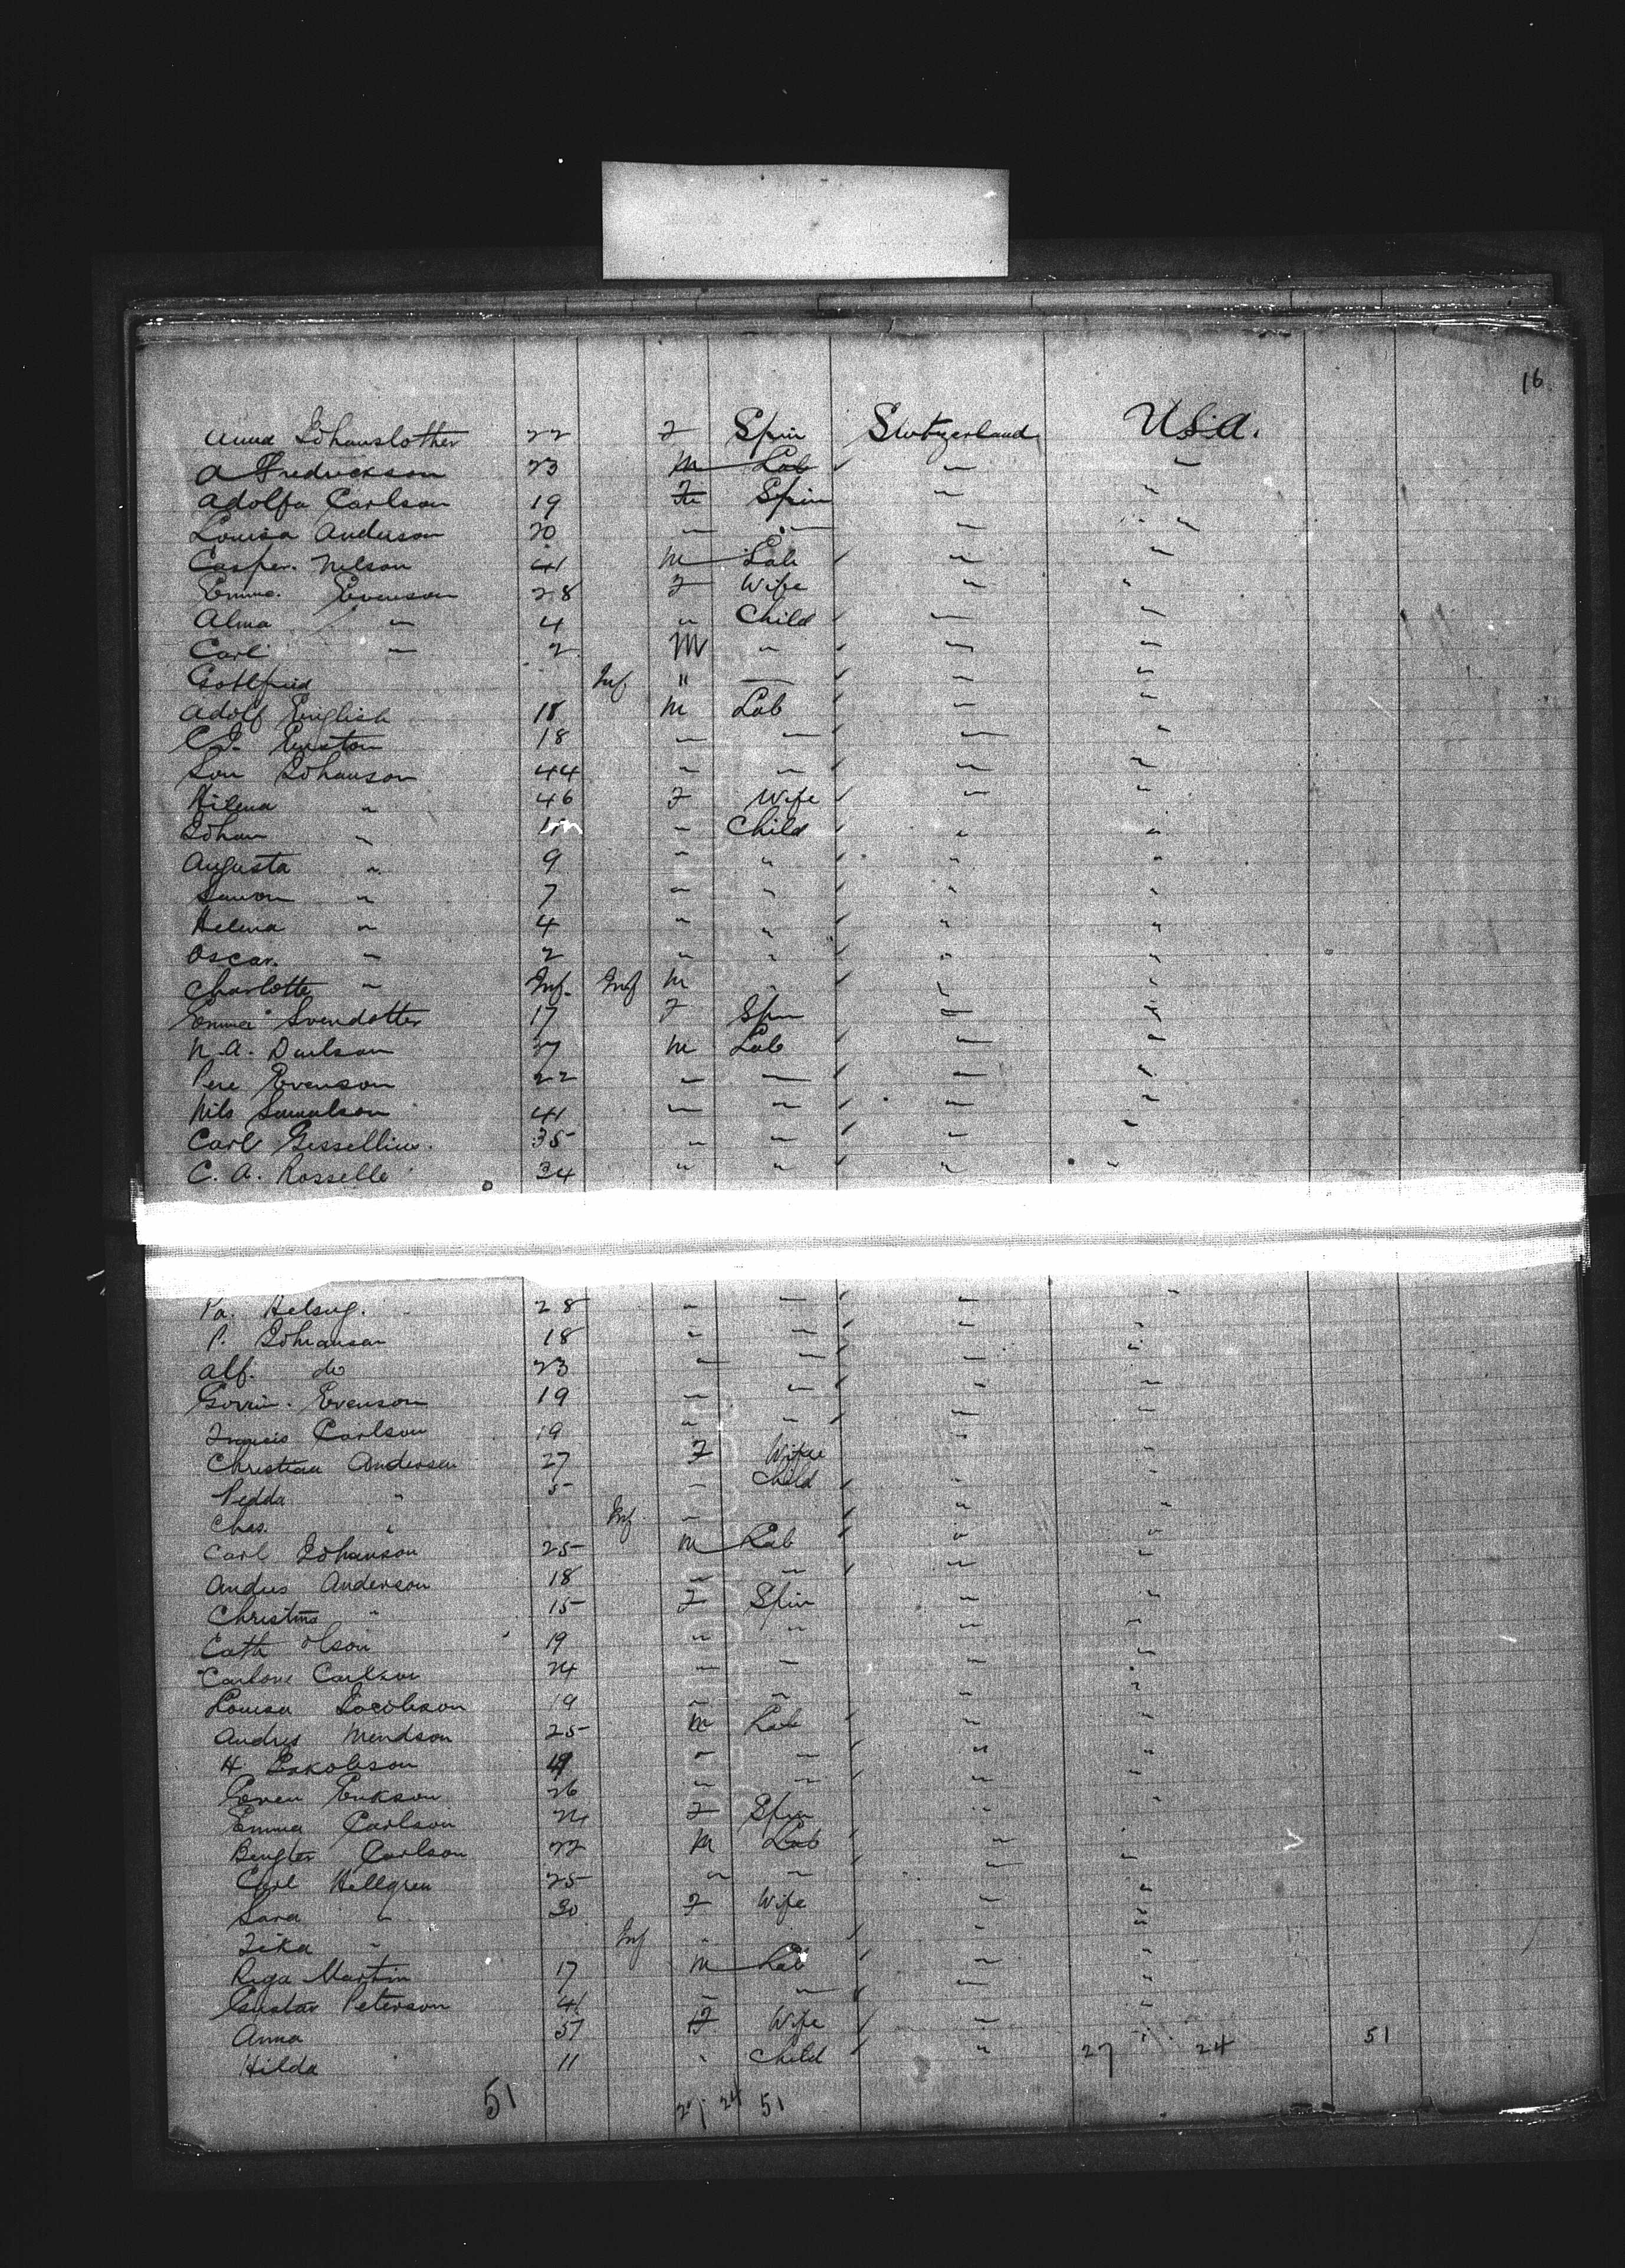 16
Anna Johanslother 22 F Spin Switzerland U.S.A.
A Fredrickson 23 M Lab " "
Adolfa Carlson 19 Fe Spin " "
Louisa Anderson 20 " " " "
Casper Nelson 41 M Lab " "
Emma Evenson 28 F Wife " "
Alma " 4 " Child " "
Carl " 2 M " " "
Gottfried Inf " " " "
Adolf English 18 M Lab " "
18 " " " "
Johanson 44 " " " "
Hilena " 46 F Wife " "
Johan " 11 " Child " "
Augusta " 9 " " " "
Simon " 7 " " " "
Helena " 4 " " " "
Oscar. " 2 " " " "
Charlotte " Inf. Inf M " " "
Emma Svendotter 17 F Spin " "
N. A. Daulson 37 M Lab " "
Pere Evenson 22 " " " "
Nils Samulson 41 " " " "
Carl 35 " " " "
C. A. Rosselle 34 " " " "
Pa. Helsug. 28 " " " "
P. Johanson 18 " " " "
Alf. do 23 " " " "
Evenson 19 " " " "
Francis Carlson 19 " " " "
Christian Andersen 27 F Wife " "
Pedda " 5 " Child " "
Chas. " Inf " " "
Carl Johanson 25 M Lab " "
Andres Anderson 18 " " " "
Christina " 15 F Spin " "
Cath Olson 19 " " " "
Carlone Carlson 24 " " " "
Louisa Jacobson 19 " " " "
Andres Mendson 25 M Lab " "
H Jakobson 19 " " " "
Even Erikson 26 " " " "
Emma Carlson 24 F Spin " "
Bengter Carlson 22 M Lab " "
Carl Hellgren 25 " " " "
Sara " 30 F Wife " "
Zika " Inf " " "
Riga Martin 17 M Lab " "
Gustav Peterson 41 " " " "
Anna 37 F Wife " "
Hilda 11 " Child " 27 24 51
51 27 24 51